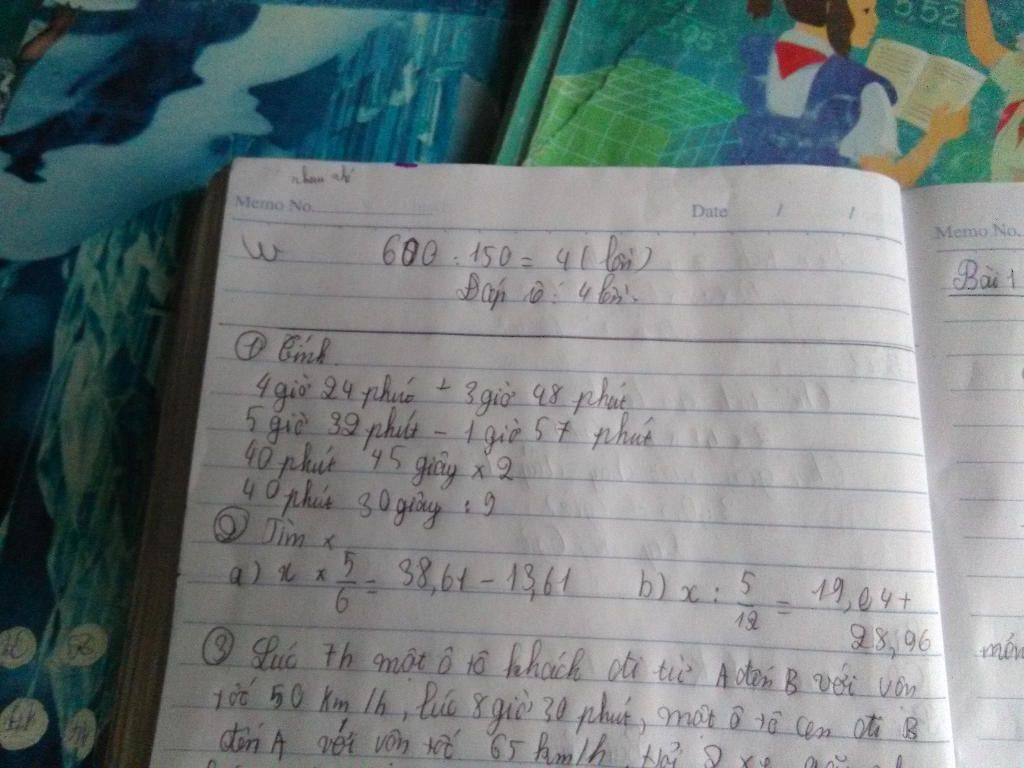 Memo No.
Date / /
600 : 150 = 4 (lần)
Đáp số: 4 lần.
① Tính
4 giờ 24 phút + 3 giờ 48 phút
5 giờ 32 phút - 1 giờ 57 phút
40 phút 45 giây x 2
40 phút 30 giây : 9
② Tìm x
a) x x 5/6 = 38,61 - 13,61 b) x : 5/12 = 19,04 +
28,96
③ Lúc 7h một ô tô khách đi từ A đến B với vận
tốc 50 km/h, lúc 8 giờ 30 phút, một ô tô con đi B
đến A với vận tốc 65 km/h.
Memo No.
Bài 1
5,52